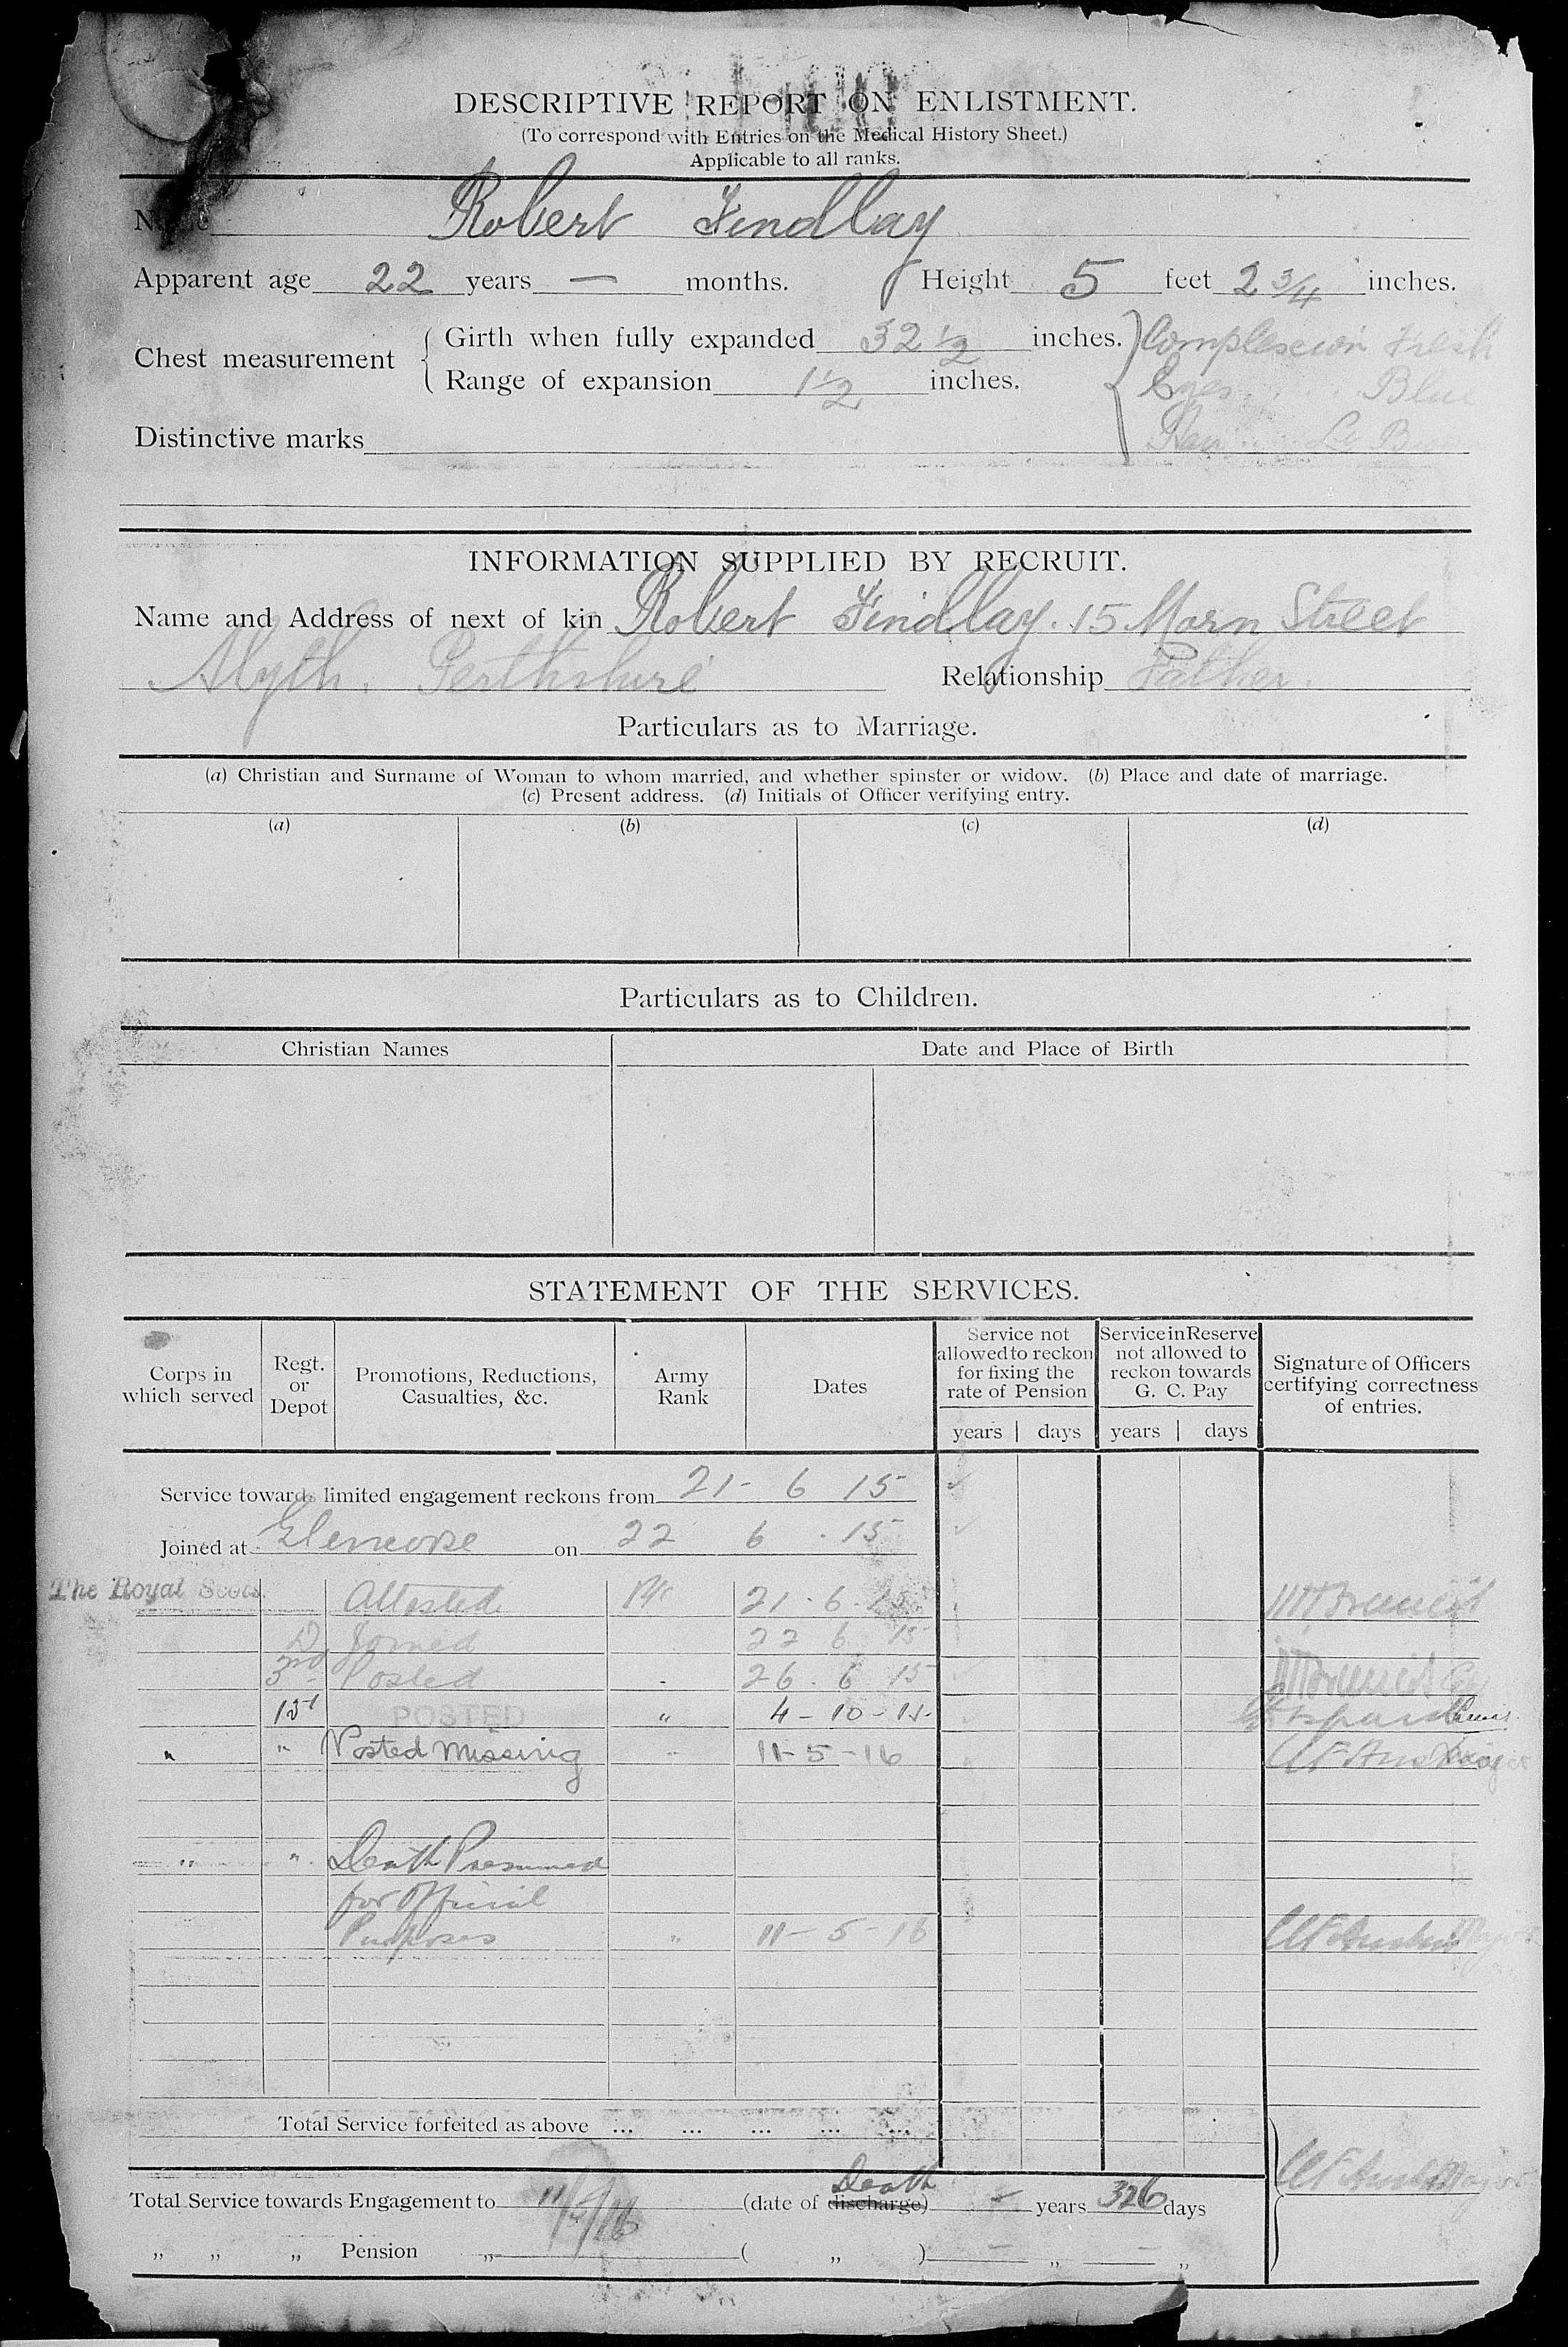 DESCRIPTIVE REPORT ON ENLISTMENT.
(To correspond with Entries on the Medical History Sheet.)
Applicable to all ranks.
Name Robert Findlay
Apparent age 22 years — months. Height 5 feet 2 3/4 inches.
Chest measurement { Girth when fully expanded 32 1/2 inches. } Complexion Fresh
Range of expansion 1 1/2 inches. Eyes Blue
Distinctive marks Hair
INFORMATION SUPPLIED BY RECRUIT.
Name and Address of next of kin Robert Findlay. 15 Morn Street
Alyth. Perthshire Relationship Father.
Particulars as to Marriage.
(a) Christian and Surname of Woman to whom married, and whether spinster or widow. (b) Place and date of marriage.
(c) Present address. (d) Initials of Officer verifying entry.
(a) (b) (c) (d)
Particulars as to Children.
Christian Names Date and Place of Birth
STATEMENT OF THE SERVICES.
Corps in which served
Regt. or Depot
Promotions, Reductions, Casualties, &c.
Army Rank
Dates
Service not allowed to reckon for fixing the rate of Pension
years | days
Service in Reserve not allowed to reckon towards G. C. Pay
years | days
Signature of Officers certifying correctness of entries.
Service towards limited engagement reckons from 21 - 6 15
Joined at Glencorse on 22 6 . 15
The Royal Scots Attested Pte 21 . 6 . 15
D Joined 22 6 15
3rd Posted 26 . 6 15
1st POSTED " 4 - 10 - 15
" " Posted Missing " 11 - 5 - 16
" " Death Presumed
for Official
Purposes " 11 - 5 - 16 Major
Total Service forfeited as above ... ... ... ... ...
Total Service towards Engagement to 11/5/16 (date of discharge) Death - years 326 days
" " " Pension " ( " ) — " — "
Major